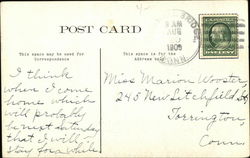 POST CARD
This space may be used for
Correspondence
This space is
Address
8 AM
AUG
1909
CONN
I think
when I come
home which
will probably
be next Saturday
that I will
stay for a while
Miss Marion Wooster
245 New Litchfield St
Torrington,
Conn